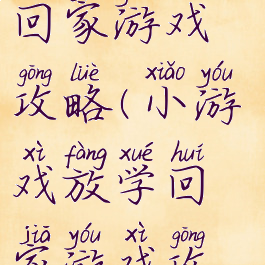 回家游戏
gōng lüè xiǎo yóu
攻略(小游
xì fàng xué huí
戏放学回
jiā yóu xì gōng
家游戏攻